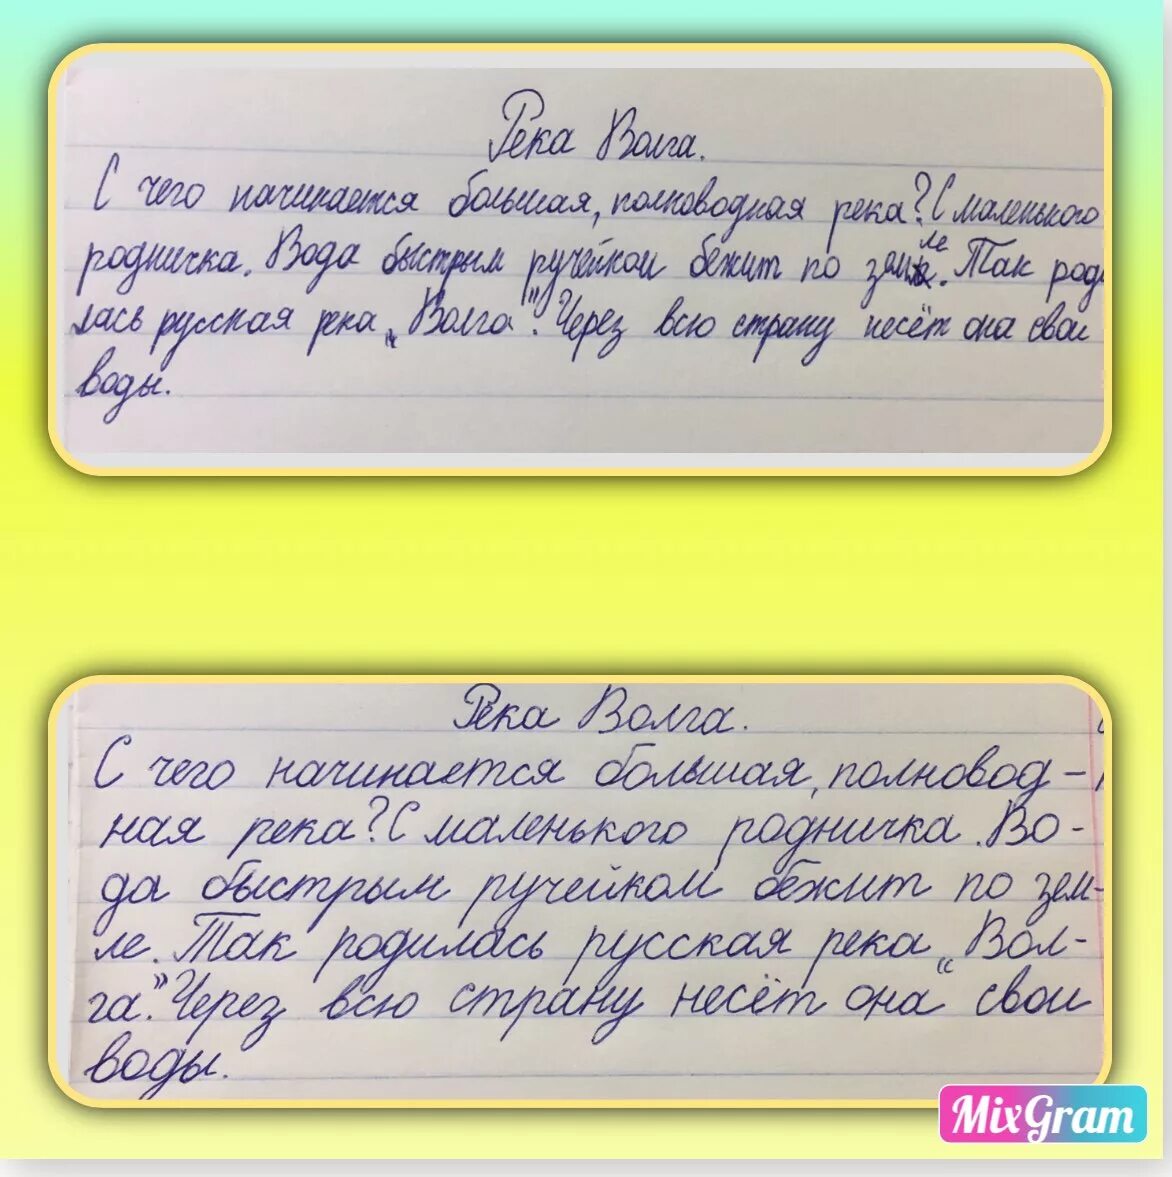 Река Волга.
С чего начинается большая, полноводная река? С маленького
родничка. Вода быстрым ручейком бежит по земле. Так роди
лась русская река „Волга". Через всю страну несёт она свои
воды.
Река Волга.
С чего начинается большая, полновод-
ная река? С маленького родничка. Во-
да быстрым ручейком бежит по зем-
ле. Так родилась русская река „Вол-
га". Через всю страну несёт она свои
воды.
MixGram